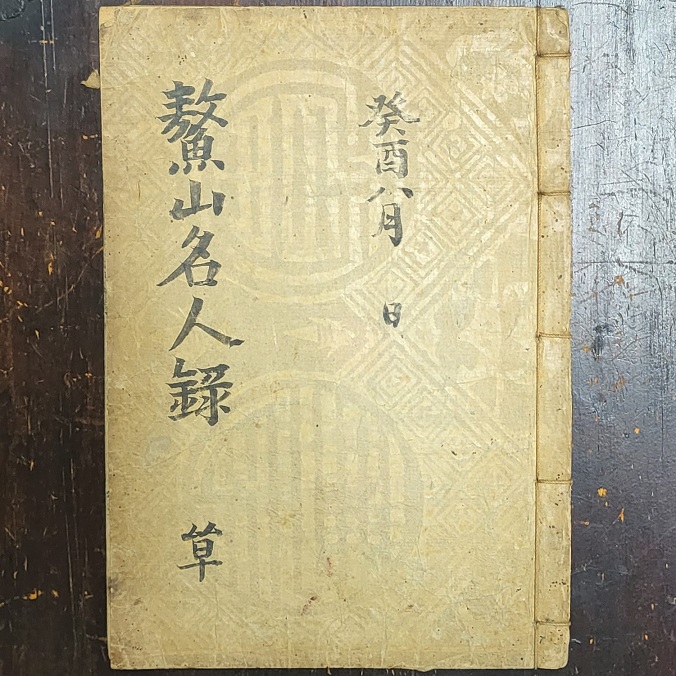 癸酉八月 日
鰲山名人錄 草